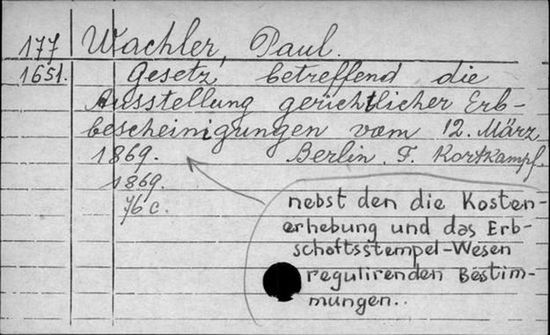 177 Wachler, Paul.
1651. Gesetz, betreffend die
Ausstellung gerichtlicher Erb-
bescheinigungen vom 12. März
1869. Berlin. F. Kortkampf.
1869.
76 c.
nebst den die Kosten-
erhebung und das Erb-
schaftsstempel-Wesen
regulirenden Bestim-
mungen..